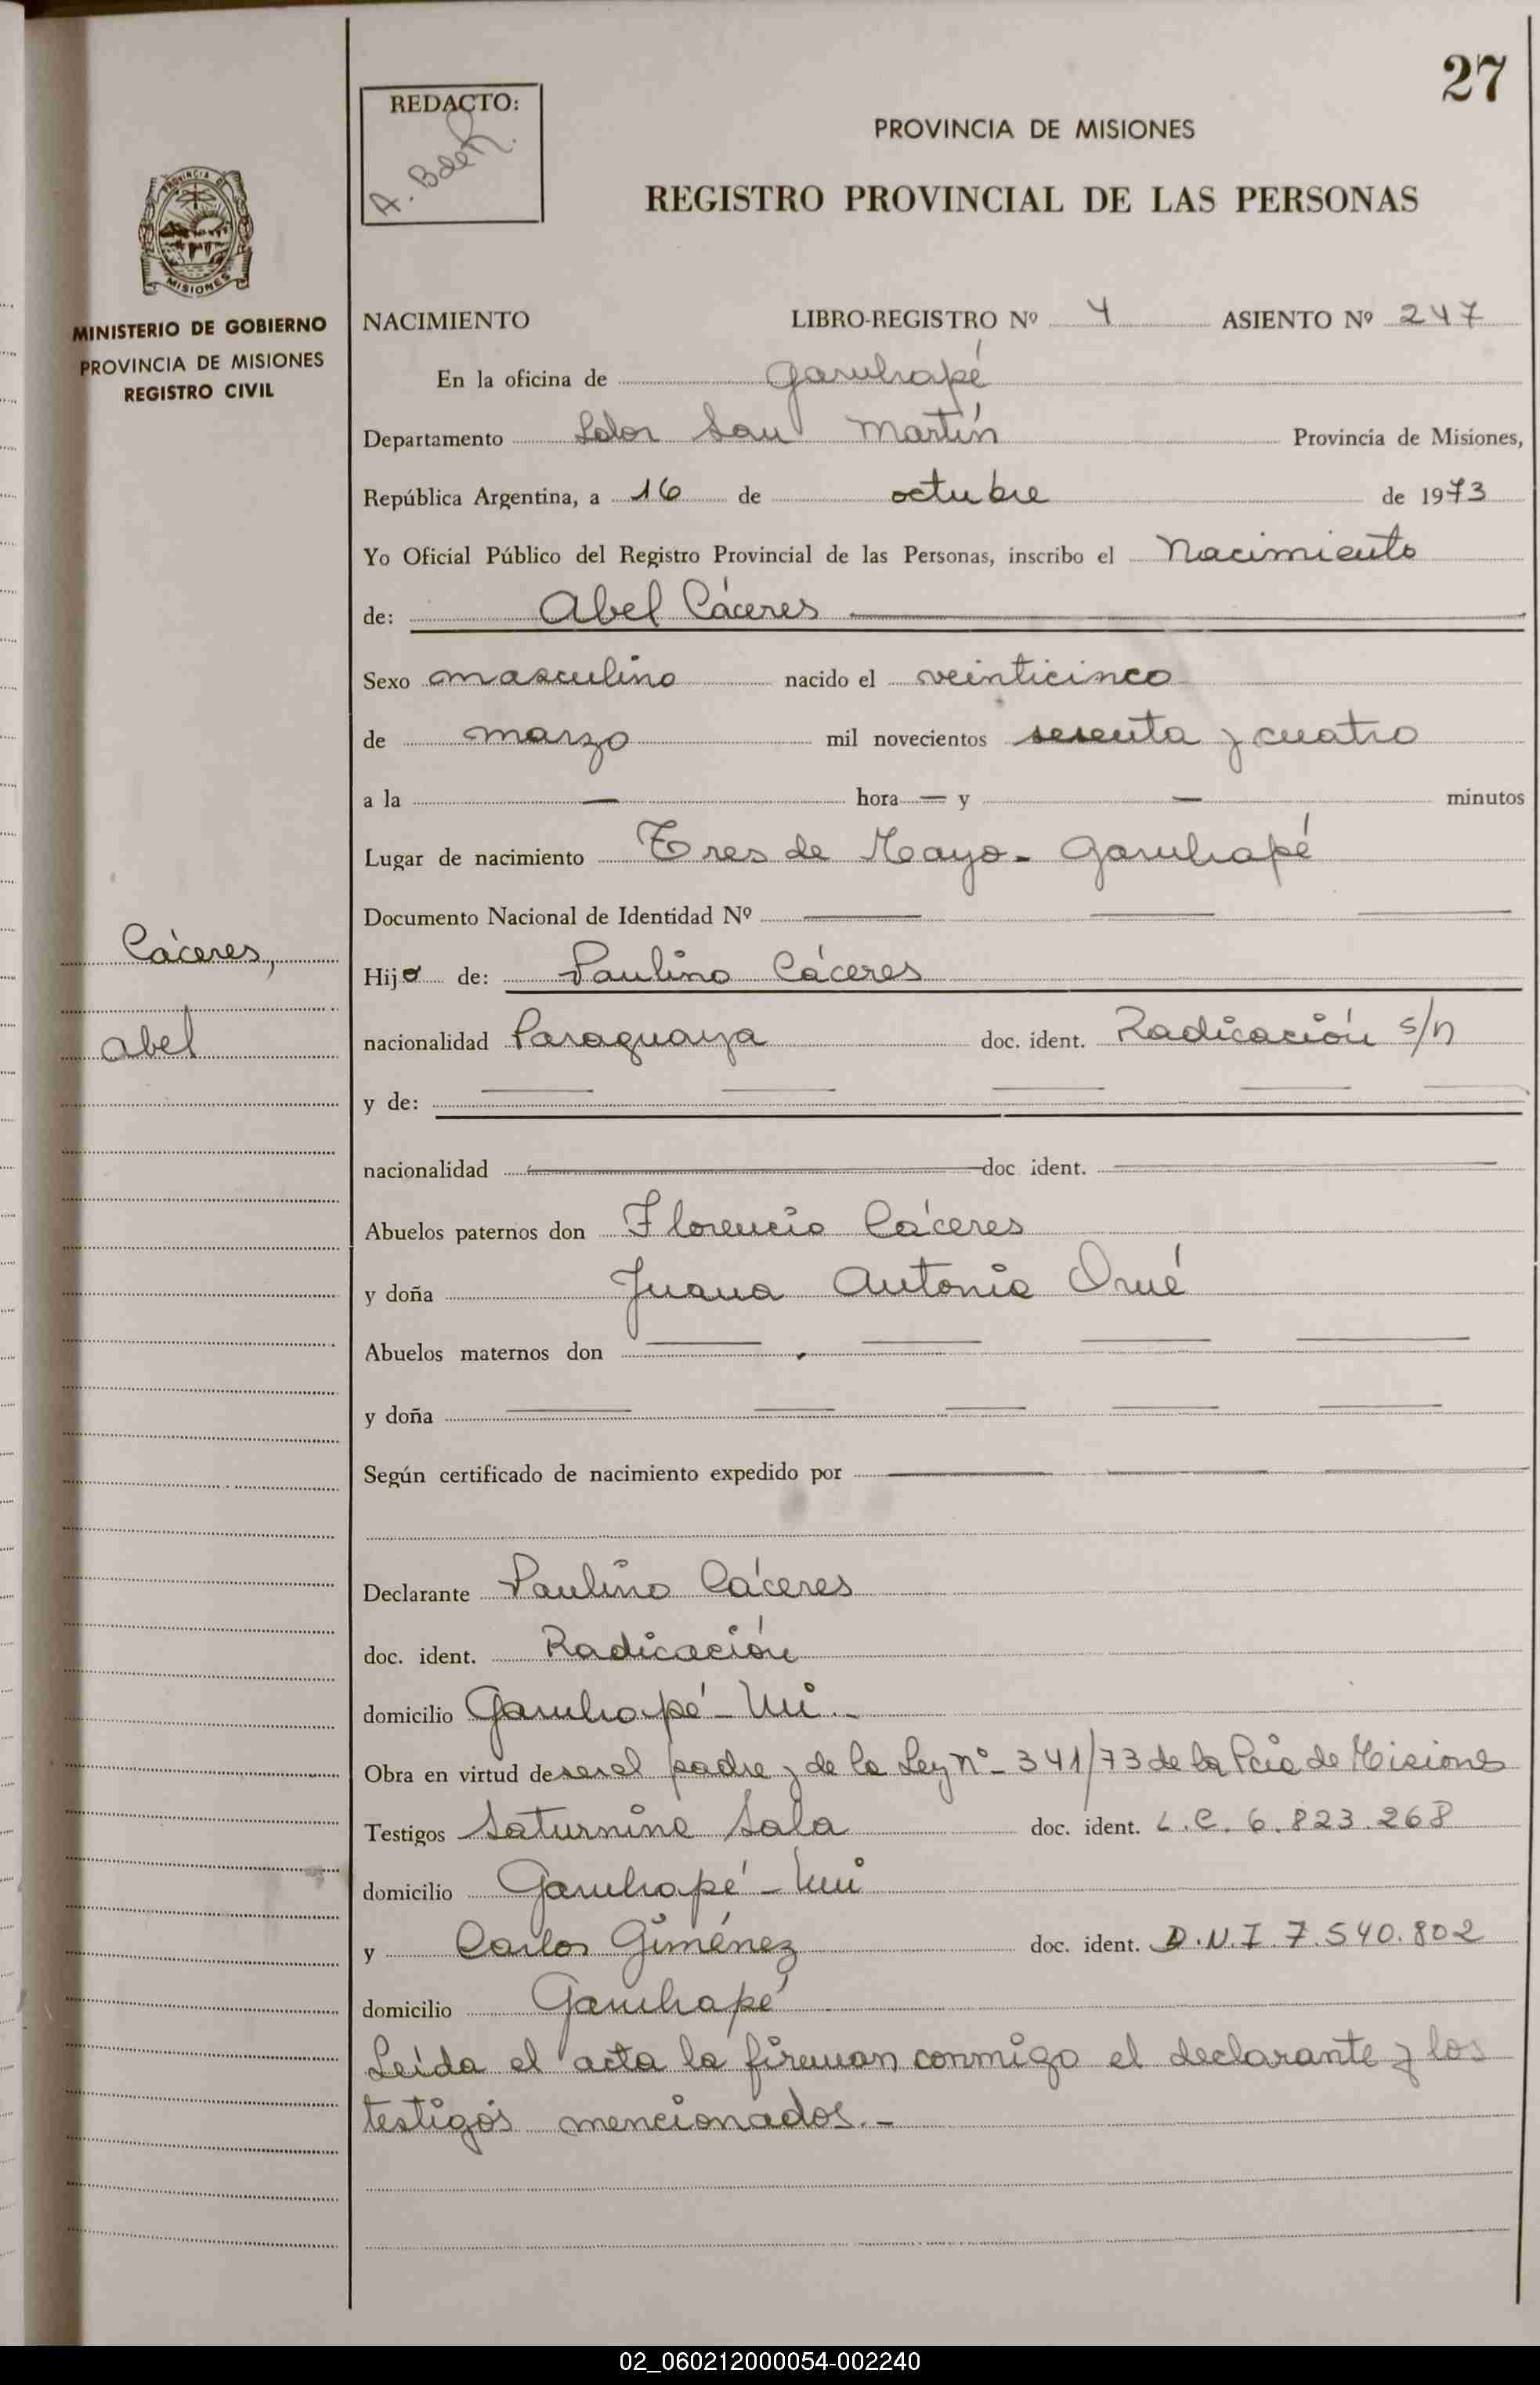 27
REDACTO:
A. Baez
PROVINCIA DE MISIONES
REGISTRO PROVINCIAL DE LAS PERSONAS
PROVINCIA DE
MISIONES
MINISTERIO DE GOBIERNO
PROVINCIA DE MISIONES
REGISTRO CIVIL
NACIMIENTO LIBRO-REGISTRO Nº 4 ASIENTO Nº 247
En la oficina de Garuhapé
Departamento Ldor San Martín Provincia de Misiones,
República Argentina, a 16 de octubre de 1973
Yo Oficial Público del Registro Provincial de las Personas, inscribo el Nacimiento
de: Abel Cáceres
Sexo masculino nacido el veinticinco
de marzo mil novecientos sesenta y cuatro
a la — hora — y — minutos
Lugar de nacimiento Tres de Mayo - Garuhapé
Documento Nacional de Identidad Nº
Cáceres,
Abel
Hijo de: Paulino Cáceres
nacionalidad Paraguaya doc. ident. Radicación s/n
y de:
nacionalidad doc. ident.
Abuelos paternos don Florencio Cáceres
y doña Juana Antonia Orué
Abuelos maternos don
y doña
Según certificado de nacimiento expedido por
Declarante Paulino Cáceres
doc. ident. Radicación
domicilio Garuhapé - Mi.-
Obra en virtud de ser el padre y de la Ley nº - 341/73 de la Pcia de Misiones
Testigos Saturnina Sala doc. ident. L.C. 6.823.268
domicilio Garuhapé - Mi
y Carlos Giménez doc. ident. D.N.I. 7.540.802
domicilio Garuhapé
Leída el acta la firman conmigo el declarante y los
testigos mencionados.-
02_060212000054-002240